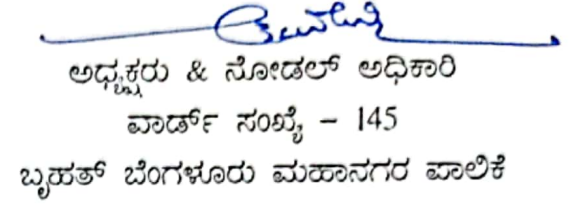 ಅಧ್ಯಕ್ಷರು & ನೋಡಲ್ ಅಧಿಕಾರಿ
ವಾರ್ಡ್ ಸಂಖ್ಯೆ – 145
ಬೃಹತ್ ಬೆಂಗಳೂರು ಮಹಾನಗರ ಪಾಲಿಕೆ